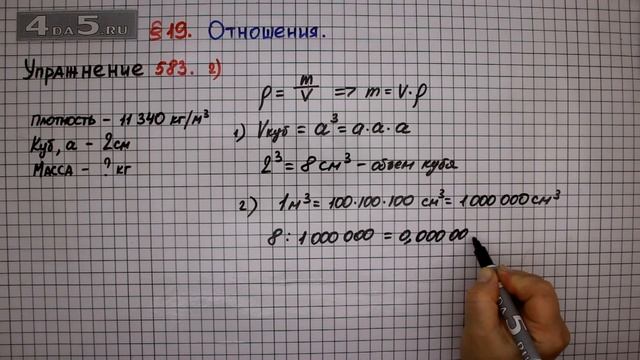 4DA5.RU
§ 19. Отношения.
Упражнение 583. 2)
Плотность - 11 340 кг/м³
Куб, a - 2см
Масса - ? кг
ρ = m/V => m = V·ρ
1) Vкуб = a³ = a·a·a
2³ = 8 см³ - объем куба
2) 1м³ = 100·100·100 см³ = 1 000 000 см³
8 : 1 000 000 = 0,000 00
4DA5.RU